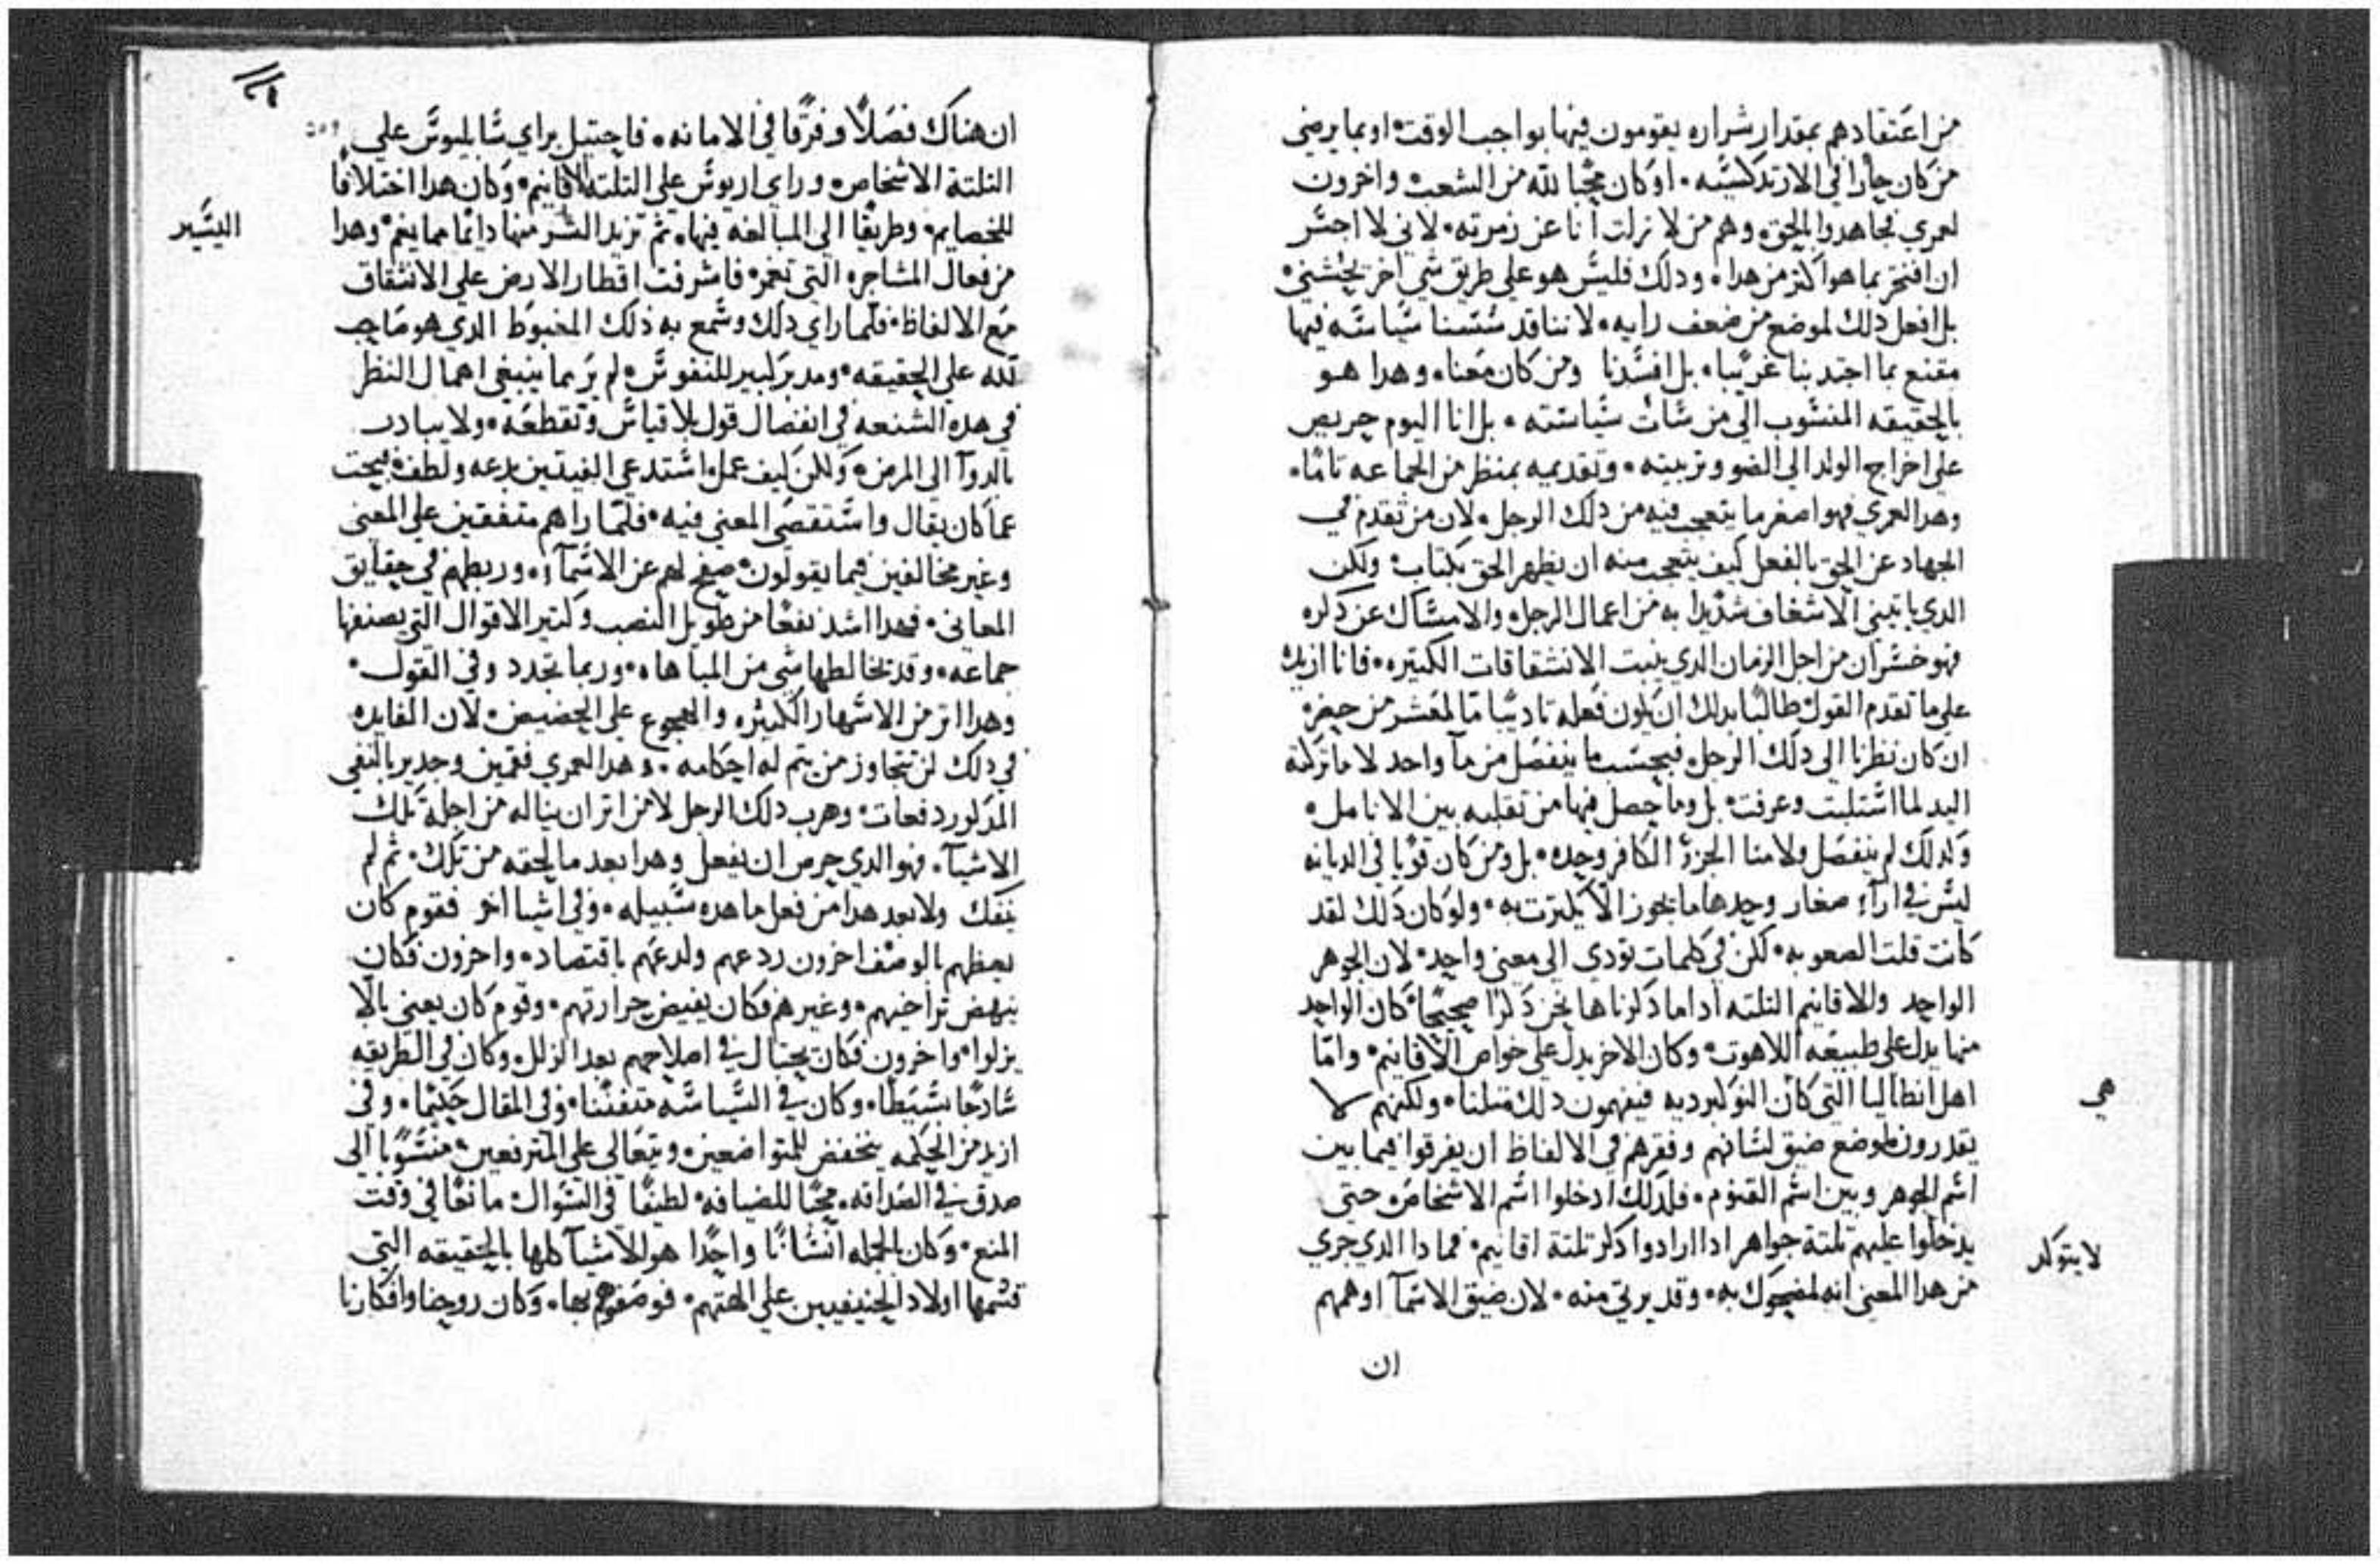 من اعتقادهم بمقدار شراره يقومون فيها بواجب الوقت او بما يرضى
من كان حارا في الارتدكسيه اوكان محبا لله من الشعب واخرون
لعمري مجاهدوا بالحق وهم من لا زلت انا عن زمرته لاني لا اجسر
ان افتخر بما هو اكتر من هدا ودلك فليس هو على طريق شي اخر
بل افعل دلك لموضع من ضعف رايه لاننا قد سسنا سياسه فيها
مقنع بما اجتدبنا غريبا بل افسدنا ومن كان معنا وهدا هو
بالحقيقه المنسوب الى من سات سياسته بل انا اليوم حريص
على اخراج الولد الى الضو وتربيته وتقديمه بمنظر من الجماعه تاما
وهدا لعمري فهو اصغر ما يتعجب فيه من دلك الرجل لان من تقدم في
الجهاد عن الحق بالفعل كيف يتعجب منه ان يظهر الحق بكتاب ولكن
الدي ياتيني الاشغاف شديدا به من اعمال الرجل والامساك عن دكره
فهو خسران من اجل الزمان الدي ينبت الانشقاقات الكتيره فانا ازيد
على ما تقدم القول طالبا بدلك ان يكون فعله تاديبا ما لمعشر من حضر
ان كان نظرنا الى دلك الرجل فبحسب ما ينفصل من ما واحد لا ما تركته
اليد لما استلبت وغرفت بل وما حصل فيها من تقلبه بين الانامل
ولدلك لم ينفصل ولا منا الجزؤ الكافر وحده بل ومن كان قويا في الديانه
ليس في ارآء صغار وحدها ما يجوز الا يكترت به ولو كان دلك لقد
كانت قلت الصعوبه لكن في كلمات تودي الى معنى واحد لان الجوهر
الواحد والاقانيم التلته ادا ما دكرناها نحن دكرا صحيحا كان الواحد
منها يدل على طبيعه اللاهوت وكان الاخر يدل على خواص الاقانيم واما
اهل انطاليا التي كان دلك مثلنا ولكنهم لا
يقدرون لموضع ضيق لسانهم وفقرهم في الالفاظ ان يفرقوا فيما بين
اسم الجوهر وبين اسم القنوم فلدلك ادخلوا اسم الاشخاص حتى
يدخلوا عليهم تلتة جواهر ادا ارادوا دكر تلتة اقانيم فمادا الدي جري
من هدا المعنى انه لمضحوك به وقد يرتى منه لان ضيق الاسمآ اوهمهم
ان
هي
لا يتوكد
ان هناك فصلا وفرقا في الامانه فاحتيل براي سابليوس على
التلتة الاشخاص وراي اريوس على التلتة الاقانيم وكان هدا اختلاقا
للخصايم وطريقا الى المبالغه فيها ثم تزيد الشر منها دايما مما يغم وهدا
من فعال المشاجره التي تغم فاشرفت اقطار الارض على الانشقاق
مع الالفاظ فلما راي دلك وسمع به ذلك المغبوط الدي هو صاحب
لله على الحقيقه ومدبر كبير للنفوس لم ير مما ينبغي اهمال النظر
في هده الشنعه في انفصال قول بلا قياس وتقطعه ولا يبادر
بالدوآ الى المرض ولكن كيف عمل استدعى الفيتين بدعه ولطف يبحت
عما كان يقال واستقصى المعنى فيه فلما راهم متفقين على المعنى
وغير مخالفين فيما يقولون صفح لهم عن الاسمآء وربطهم في حقايق
المعاني فهدا اشد نفعا من طويل النصب وكتير الاقوال التي يصنفها
جماعه وقد يخالطها شي من المباهاه وربما تجدد وفي القول
وهدا اتر من الاسهار الكتيره والهجوع على الحضيض لان الفايده
في دلك لن تتجاوز من يتم له احكامه وهدا لعمري فقمين وجدير بالنفي
المدكور دفعات وهرب دلك الرجل لا من اتر ان يناله من اجله تلك
الاشيآ فهو الدي حرص ان يفعل وهدا بعد ما لحقه من تلك ثم لم
ينفك ولا بعد هدا من فعل ما هده سبيله وفي اشيا اخر فقوم كان
يعظهم بالوصف اخرون ردعهم ولدعهم باقتصاد واخرون فكان
ينهض تراخيهم وغيرهم فكان يغيض حرارتهم وقوم كان يعنى بالا
يزلوا واخرون فكان يحتال في اصلاحهم بعد الزلل وكان في الطريقه
سادجا بسيطا وكان في السياسه متفننا وفي المقال حكيما وفي
ازيد من الحكمه ينخفض للمتواضعين ويتعالى على المترفعين منسوبا الى
صدق في الصداقه محبا للضيافه لطيفا في السوال مانعا في وقت
المنع وكان بالجمله انسانا واحدا هو للاشيآ كلها بالحقيقه التي
قسمها اولاد الحنيفيين على الهتهم فوصفوهم بها وكان زوجنا وافكارنا
اليسير